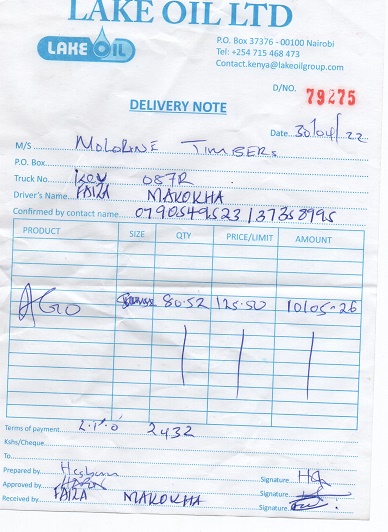 LAKE OIL LTD
LAKE OIL
P.O. Box 37376 - 00100 Nairobi
Tel: +254 715 468 473
Contact.kenya@lakeoilgroup.com
D/NO. 79275
DELIVERY NOTE
Date 30/04/22
M/S TIMBERS
P.O. Box
Truck No. 087R
Driver's Name FAIZA MAKOKHA
Confirmed by contact name 0790549523/37358995
PRODUCT SIZE QTY PRICE/LIMIT AMOUNT
AGO 80.52 125.50 10105-26
Terms of payment L.P.O 2432
Kshs/Cheque
To
Prepared by Signature
Approved by Signature
Received by FAIZA MAKOKHA Signature